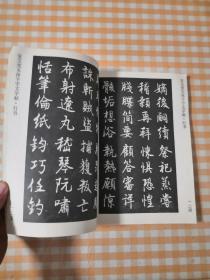 嫡後嗣續祭祀蒸嘗
稽顙再拜悚懼恐惶
牋牒簡要顧答審詳
骸垢想浴執熱願涼
誅斬賊盜捕獲叛亡
布射遼丸嵇琴阮嘯
恬筆倫紙鈞巧任釣